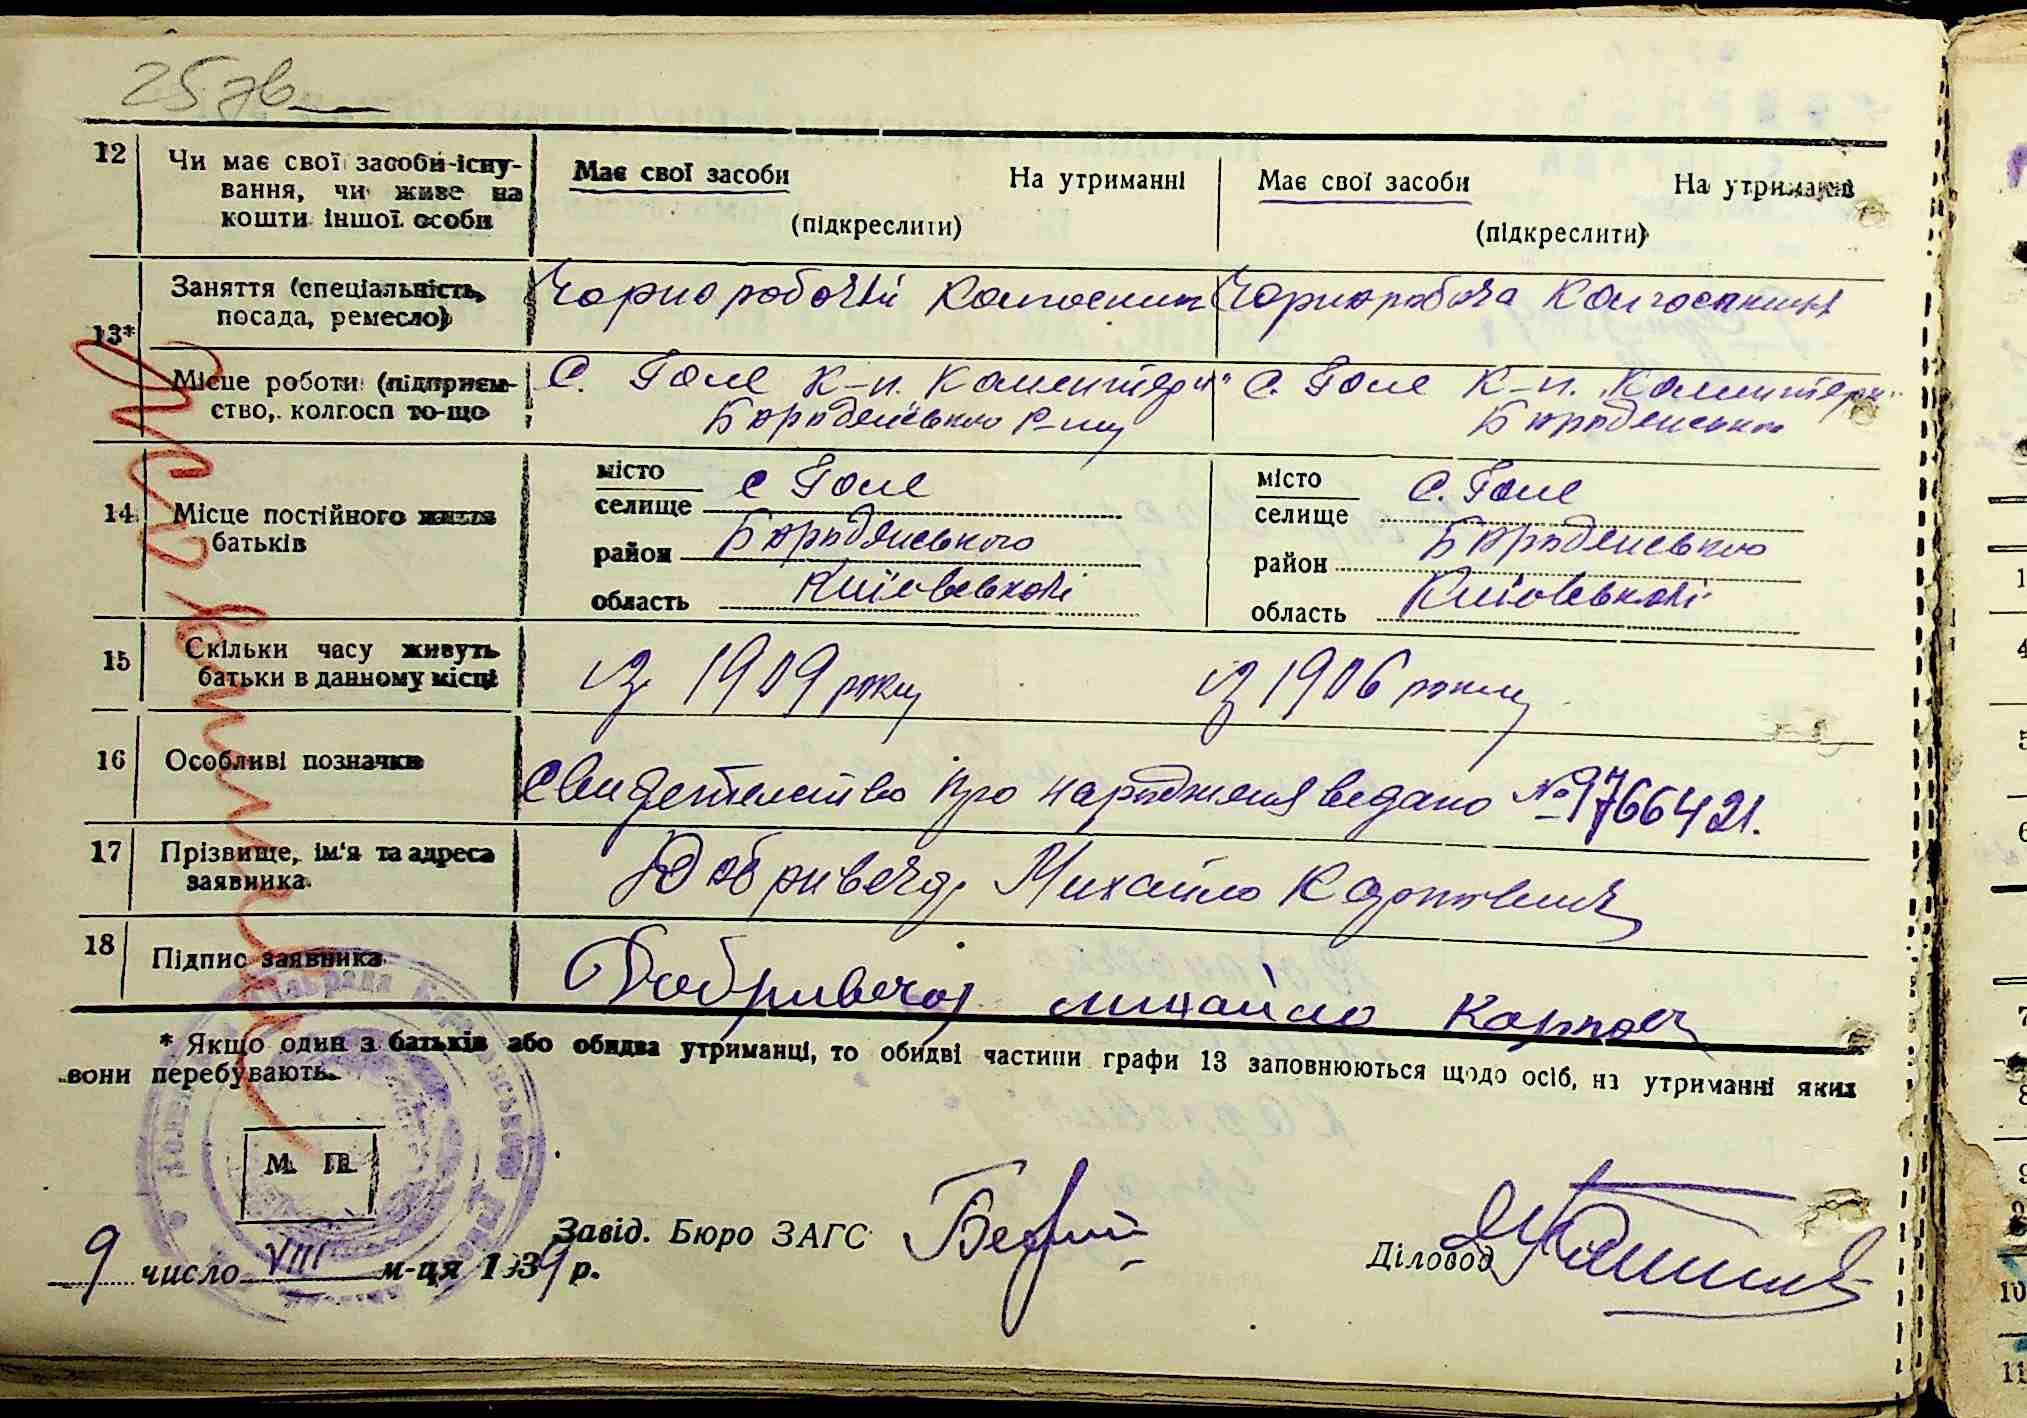 25 зв
12 Чи має свої засоби існу-
вання, чи живе на
кошти іншої особи
Має свої засоби На утриманні
(підкреслити)
Має свої засоби На утриманні
(підкреслити)
13* Заняття (спеціальність,
посада, ремесло)
Чорноробочій Колгоспник
Чорноробоча Колгоспниця
Місце роботи (підприєм-
ство, колгосп то-що
С. Голе к-п. Комінтерн"
Бородянського р-ну
С. Голе к-п. "Комінтерн"
Бородянського
14 Місце постійного життя
батьків
місто
селище с Голе
район Бородянського
область Київської
місто
селище С. Голе
район Бородянського
область Київської
15 Скільки часу живуть
батьки в данному місці
із 1909 року
із 1906 року
16 Особливі позначки
Свидетельство про народження видано № 9766421.
17 Прізвище, ім'я та адреса
заявника.
Добривечір Михайло Карпович
18 Підпис заявника
Добривечор михайло Карпов
* Якщо один з батьків або обидва утриманці, то обидві частини графи 13 заповнюються щодо осіб, на утриманні яких
вони перебувають.
М. П.
Завід. Бюро ЗАГС
Діловод
9 число VIII м-ця 1939 р.